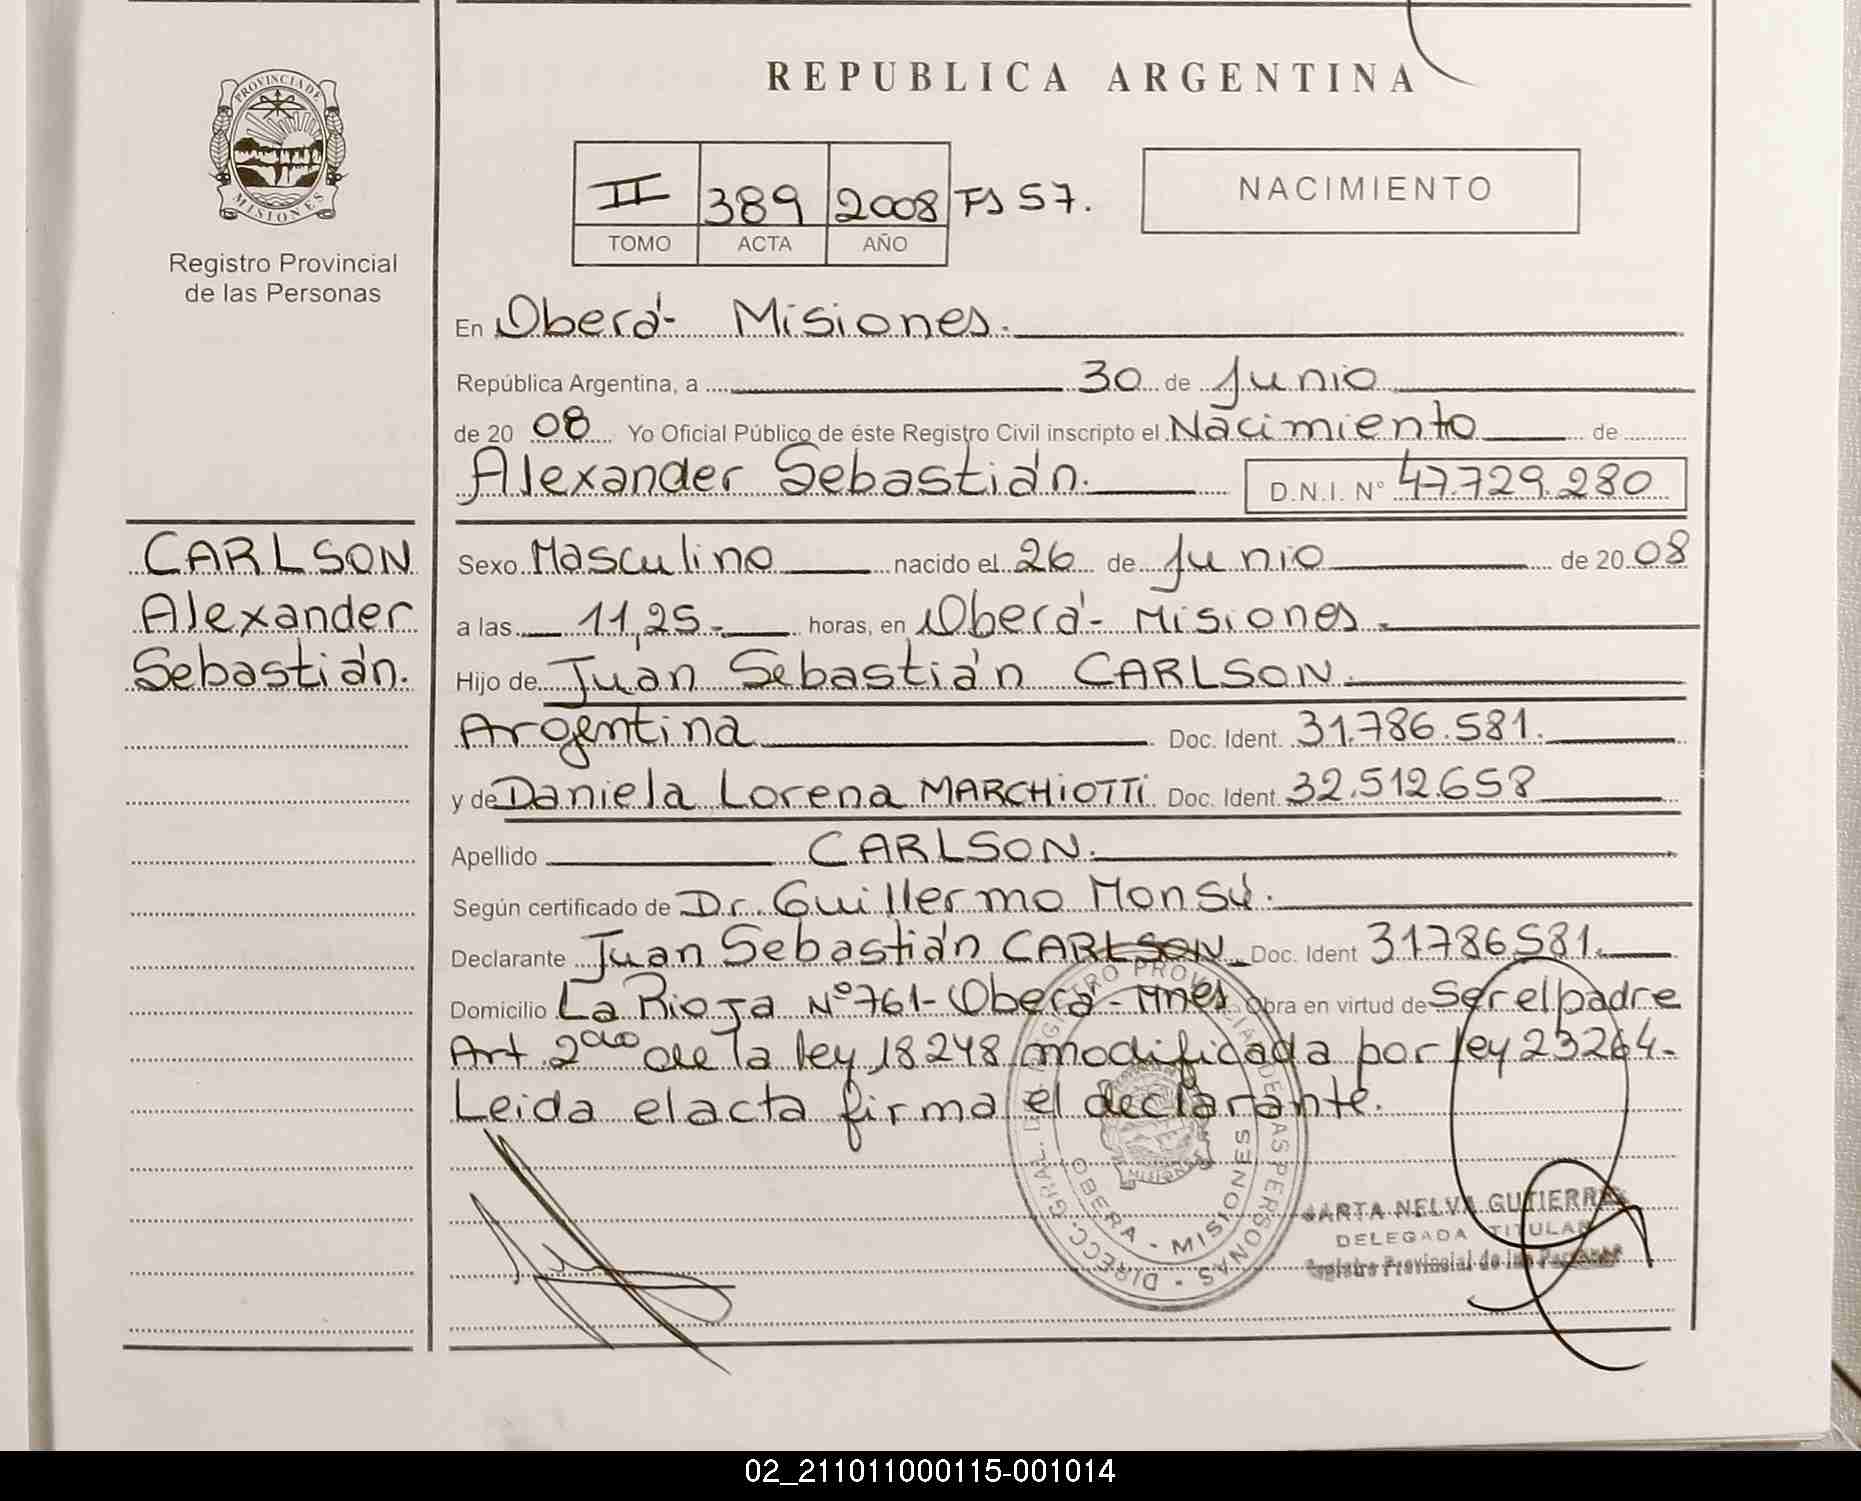 REPUBLICA ARGENTINA
PROVINCIA DE
MISIONES
Registro Provincial
de las Personas
II 389 2008 Fs 57.
TOMO ACTA AÑO
NACIMIENTO
En Oberá- Misiones.
República Argentina, a 30 de Junio
de 20 08 Yo Oficial Público de éste Registro Civil inscripto el Nacimiento de
Alexander Sebastián. D.N.I. N° 47.729.280
CARLSON
Alexander
Sebastián.
Sexo Masculino nacido el 26 de Junio de 20 08
a las 11,25- horas, en Oberá- Misiones.
Hijo de Juan Sebastián CARLSON.
Argentina Doc. Ident. 31.786.581.
y de Daniela Lorena MARCHiOTTi Doc. Ident. 32.512.658
Apellido CARLSON.
Según certificado de Dr. Guillermo Monsú.
Declarante Juan Sebastián CARLSON Doc. Ident 31786581.
Domicilio La Rioja N° 761- Oberá- Mnes Obra en virtud de Ser el padre
Art. 2do de la ley 18248 modificada por ley 23264-
Leida el acta firma el declarante.
DIRECC. GRAL. DEL REGISTRO PROVINCIAL DE LAS PERSONAS
OBERA - MISIONES
MARTA NELVA GUTIERREZ
DELEGADA TITULAR
Registro Provincial de las Personas
02_211011000115-001014